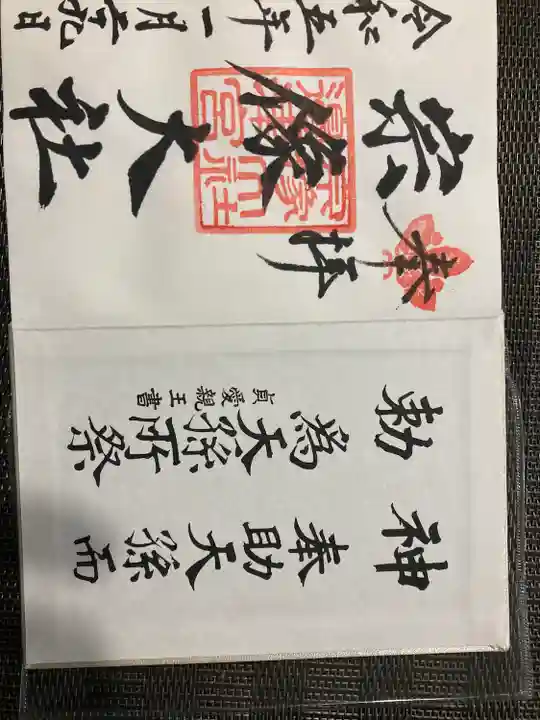 神 奉助天孫而
勅 為天孫所祭
貞愛親王書
奉拝
宗像大社
令和五年一月 九日